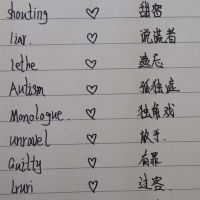 shouting ♡ 甜密
liar. ♡ 说谎者
Lethe ♡ 遗忘
Autism ♡ 孤独症
Monologue. ♡ 独角戏
unravel ♡ 放手.
Guilty ♡ 有罪
Lruri ♡ 过客.